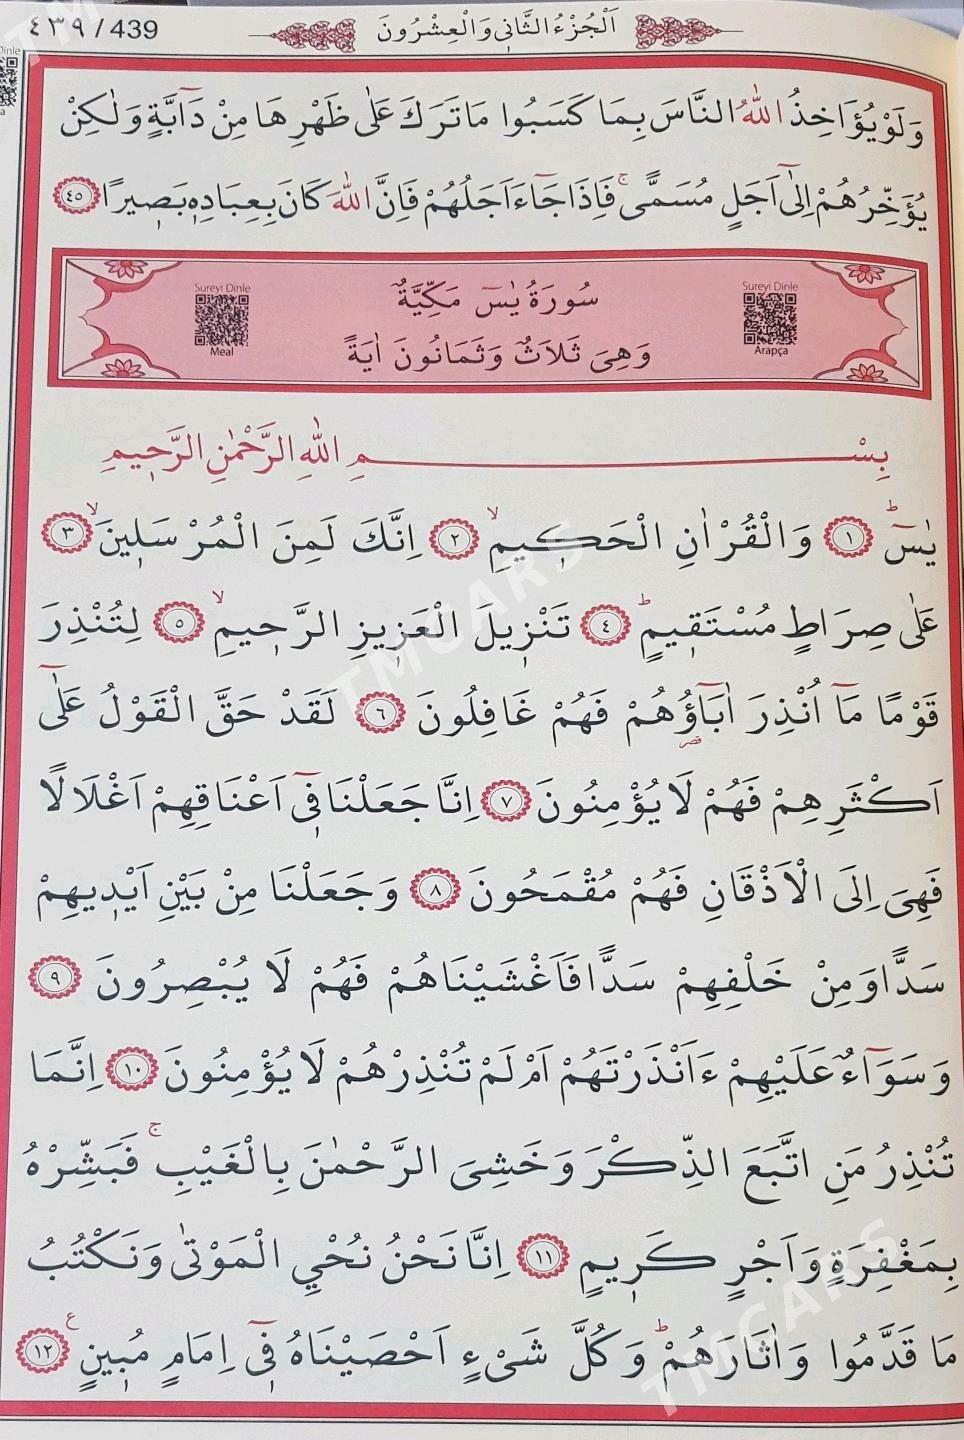 ٤٣٩ / 439
اَلْجُزْءُ الثَّانِي وَالْعِشْرُونَ
وَلَوْ يُؤَاخِذُ اللّٰهُ النَّاسَ بِمَا كَسَبُوا مَا تَرَكَ عَلٰى ظَهْرِهَا مِنْ دَٓابَّةٍ وَلٰكِنْ
يُؤَخِّرُهُمْ اِلٰٓى اَجَلٍ مُسَمًّىۚ فَاِذَا جَٓاءَ اَجَلُهُمْ فَاِنَّ اللّٰهَ كَانَ بِعِبَادِه۪ بَص۪يرًا ﴿٤٥﴾
Sureyi Dinle
Meal
سُورَةُ يٰسٓ مَكِّيَّةٌ
وَهِيَ ثَلَاثٌ وَثَمَانُونَ اٰيَةً
Sureyi Dinle
Arapça
بِسْمِ اللّٰهِ الرَّحْمٰنِ الرَّح۪يمِ
يٰسٓۜ ﴿١﴾ وَالْقُرْاٰنِ الْحَك۪يمِۙ ﴿٢﴾ اِنَّكَ لَمِنَ الْمُرْسَل۪ينَۙ ﴿٣﴾
عَلٰى صِرَاطٍ مُسْتَق۪يمٍۜ ﴿٤﴾ تَنْز۪يلَ الْعَز۪يزِ الرَّح۪يمِۙ ﴿٥﴾ لِتُنْذِرَ
قَوْمًا مَٓا اُنْذِرَ اٰبَٓاؤُ۬هُمْ فَهُمْ غَافِلُونَ ﴿٦﴾ لَقَدْ حَقَّ الْقَوْلُ عَلٰٓى
اَكْثَرِهِمْ فَهُمْ لَا يُؤْمِنُونَ ﴿٧﴾ اِنَّا جَعَلْنَا ف۪ٓي اَعْنَاقِهِمْ اَغْلَالًا
فَهِيَ اِلَى الْاَذْقَانِ فَهُمْ مُقْمَحُونَ ﴿٨﴾ وَجَعَلْنَا مِنْ بَيْنِ اَيْد۪يهِمْ
سَدًّا وَمِنْ خَلْفِهِمْ سَدًّا فَاَغْشَيْنَاهُمْ فَهُمْ لَا يُبْصِرُونَ ﴿٩﴾
وَسَوَٓاءٌ عَلَيْهِمْ ءَاَنْذَرْتَهُمْ اَمْ لَمْ تُنْذِرْهُمْ لَا يُؤْمِنُونَ ﴿١٠﴾ اِنَّمَا
تُنْذِرُ مَنِ اتَّبَعَ الذِّكْرَ وَخَشِيَ الرَّحْمٰنَ بِالْغَيْبِۚ فَبَشِّرْهُ
بِمَغْفِرَةٍ وَاَجْرٍ كَر۪يمٍ ﴿١١﴾ اِنَّا نَحْنُ نُحْيِ الْمَوْتٰى وَنَكْتُبُ
مَا قَدَّمُوا وَاٰثَارَهُمْۜ وَكُلَّ شَيْءٍ اَحْصَيْنَاهُ ف۪ٓي اِمَامٍ مُب۪ينٍ۟ ﴿١٢﴾
TMCARS
TMCARS